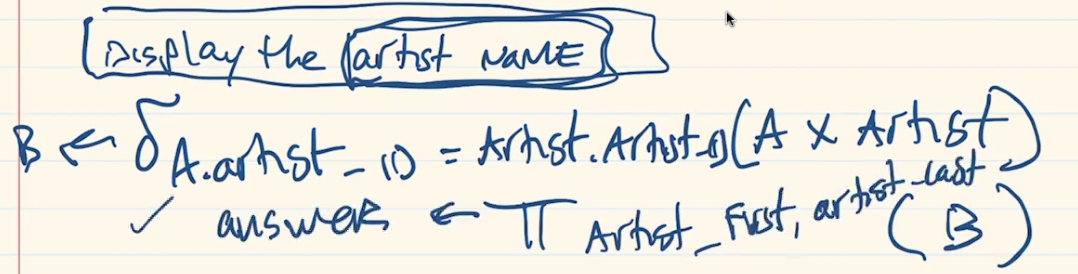 Display the artist NAME
B ← δ A.artist_ID = Artist.Artist_ID (A X Artist)
✓ answer ← π Artist_First, artist_Last (B)